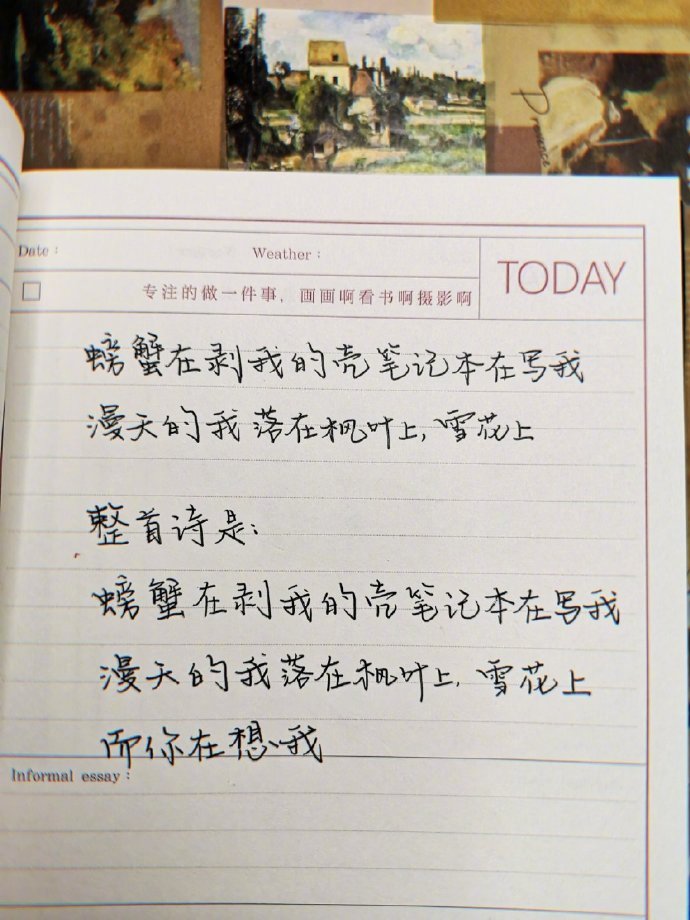 Date：
Weather：
TODAY
专注的做一件事，画画啊看书啊摄影啊
螃蟹在剥我的壳笔记本在写我
漫天的我落在枫叶上，雪花上
整首诗是：
螃蟹在剥我的壳笔记本在写我
漫天的我落在枫叶上，雪花上
而你在想我
Informal essay：